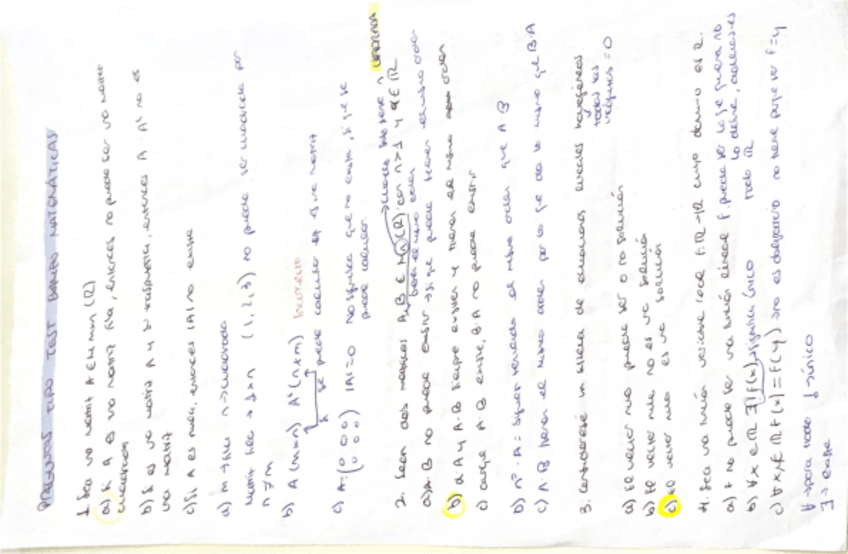 PREGUNTAS TIPO TEST MATEMÁTICAS
1. Sea una matriz A ∈ M mxn (R)
a) Si A es una matriz fila, entonces no puede ser una matriz
cuadrada
b) Si es una matriz A y su traspuesta, entonces A · Aᵗ no es
una matriz
c) Si A es nula, entonces |A| no existe
a) M → fila n → cuadrada
matriz fila → 1×n (1,2,3) no puede ser cuadrada por
n≠m
b) A (m×n) Aᵗ (n×m) Incorrecto
Si se puede calcular es una matriz
c) A = (0 0 0 / 0 0 0) |A| = 0 No significa que no exista, si que se
puede calcular
2. Sean dos matrices A, B ∈ Mn (R) con n>1 y α ∈ R
CUADRADA
a) A·B no puede existir → si que puede tienen el mismo orden
b) α·A y A·B siempre existen y tienen el mismo orden
c) aunque A·B existe, B·A no puede existir
b) nº · A = sigue teniendo el mismo orden que A·B
c) A·B tienen el mismo orden por lo que da lo mismo que B·A
3. Considérese un sistema de ecuaciones lineales homogéneas
todas sus
= 0
a) El vector nulo puede ser o no solución
b) El vector nulo no es una solución
c) El vector nulo es una solución
4. Sea una función real f: R→R cuyo dominio es R.
a) f no puede ser una función lineal f puede ser lo que quiera no
lo define, además es
todo R
b) ∀x ∈ R ∃! f(x) → significa único
c) ∀x,y ∈ R f(x) = f(y) → no es obligatorio no tiene porque ser f=y
∀ → para todo ! → único
∃ → existe